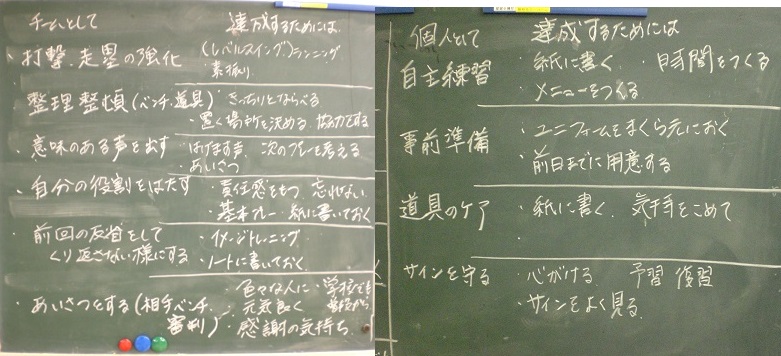 チームとして 達成するためには
打撃、走塁の強化 (レベルスイング)ランニング
素振り
整理整頓(ベンチ、道具) きっちりとならべる
・置く場所を決める 協力をする
・意味のある声を出す ・はげます声、次のプレーを考える
・あいさつ
・自分の役割をはたす ・責任感をもつ 忘れない
・基本プレー 紙に書いておく
・前回の反省をして ・イメージトレーニング
くり返さない様にする ・ノートに書いておく
・色々な人に ・学校でも
・あいさつをする(相手ベンチ、 元気良く 普段から
審判) ・感謝の気持ち
個人として 達成するためには
自主練習 ・紙に書く ・時間をつくる
・メニューをつくる
事前準備 ・ユニフォームをまくら元におく
・前日までに用意する
道具のケア ・紙に書く 気持をこめて
サインを守る ・心がける 予習 復習
・サインをよく見る